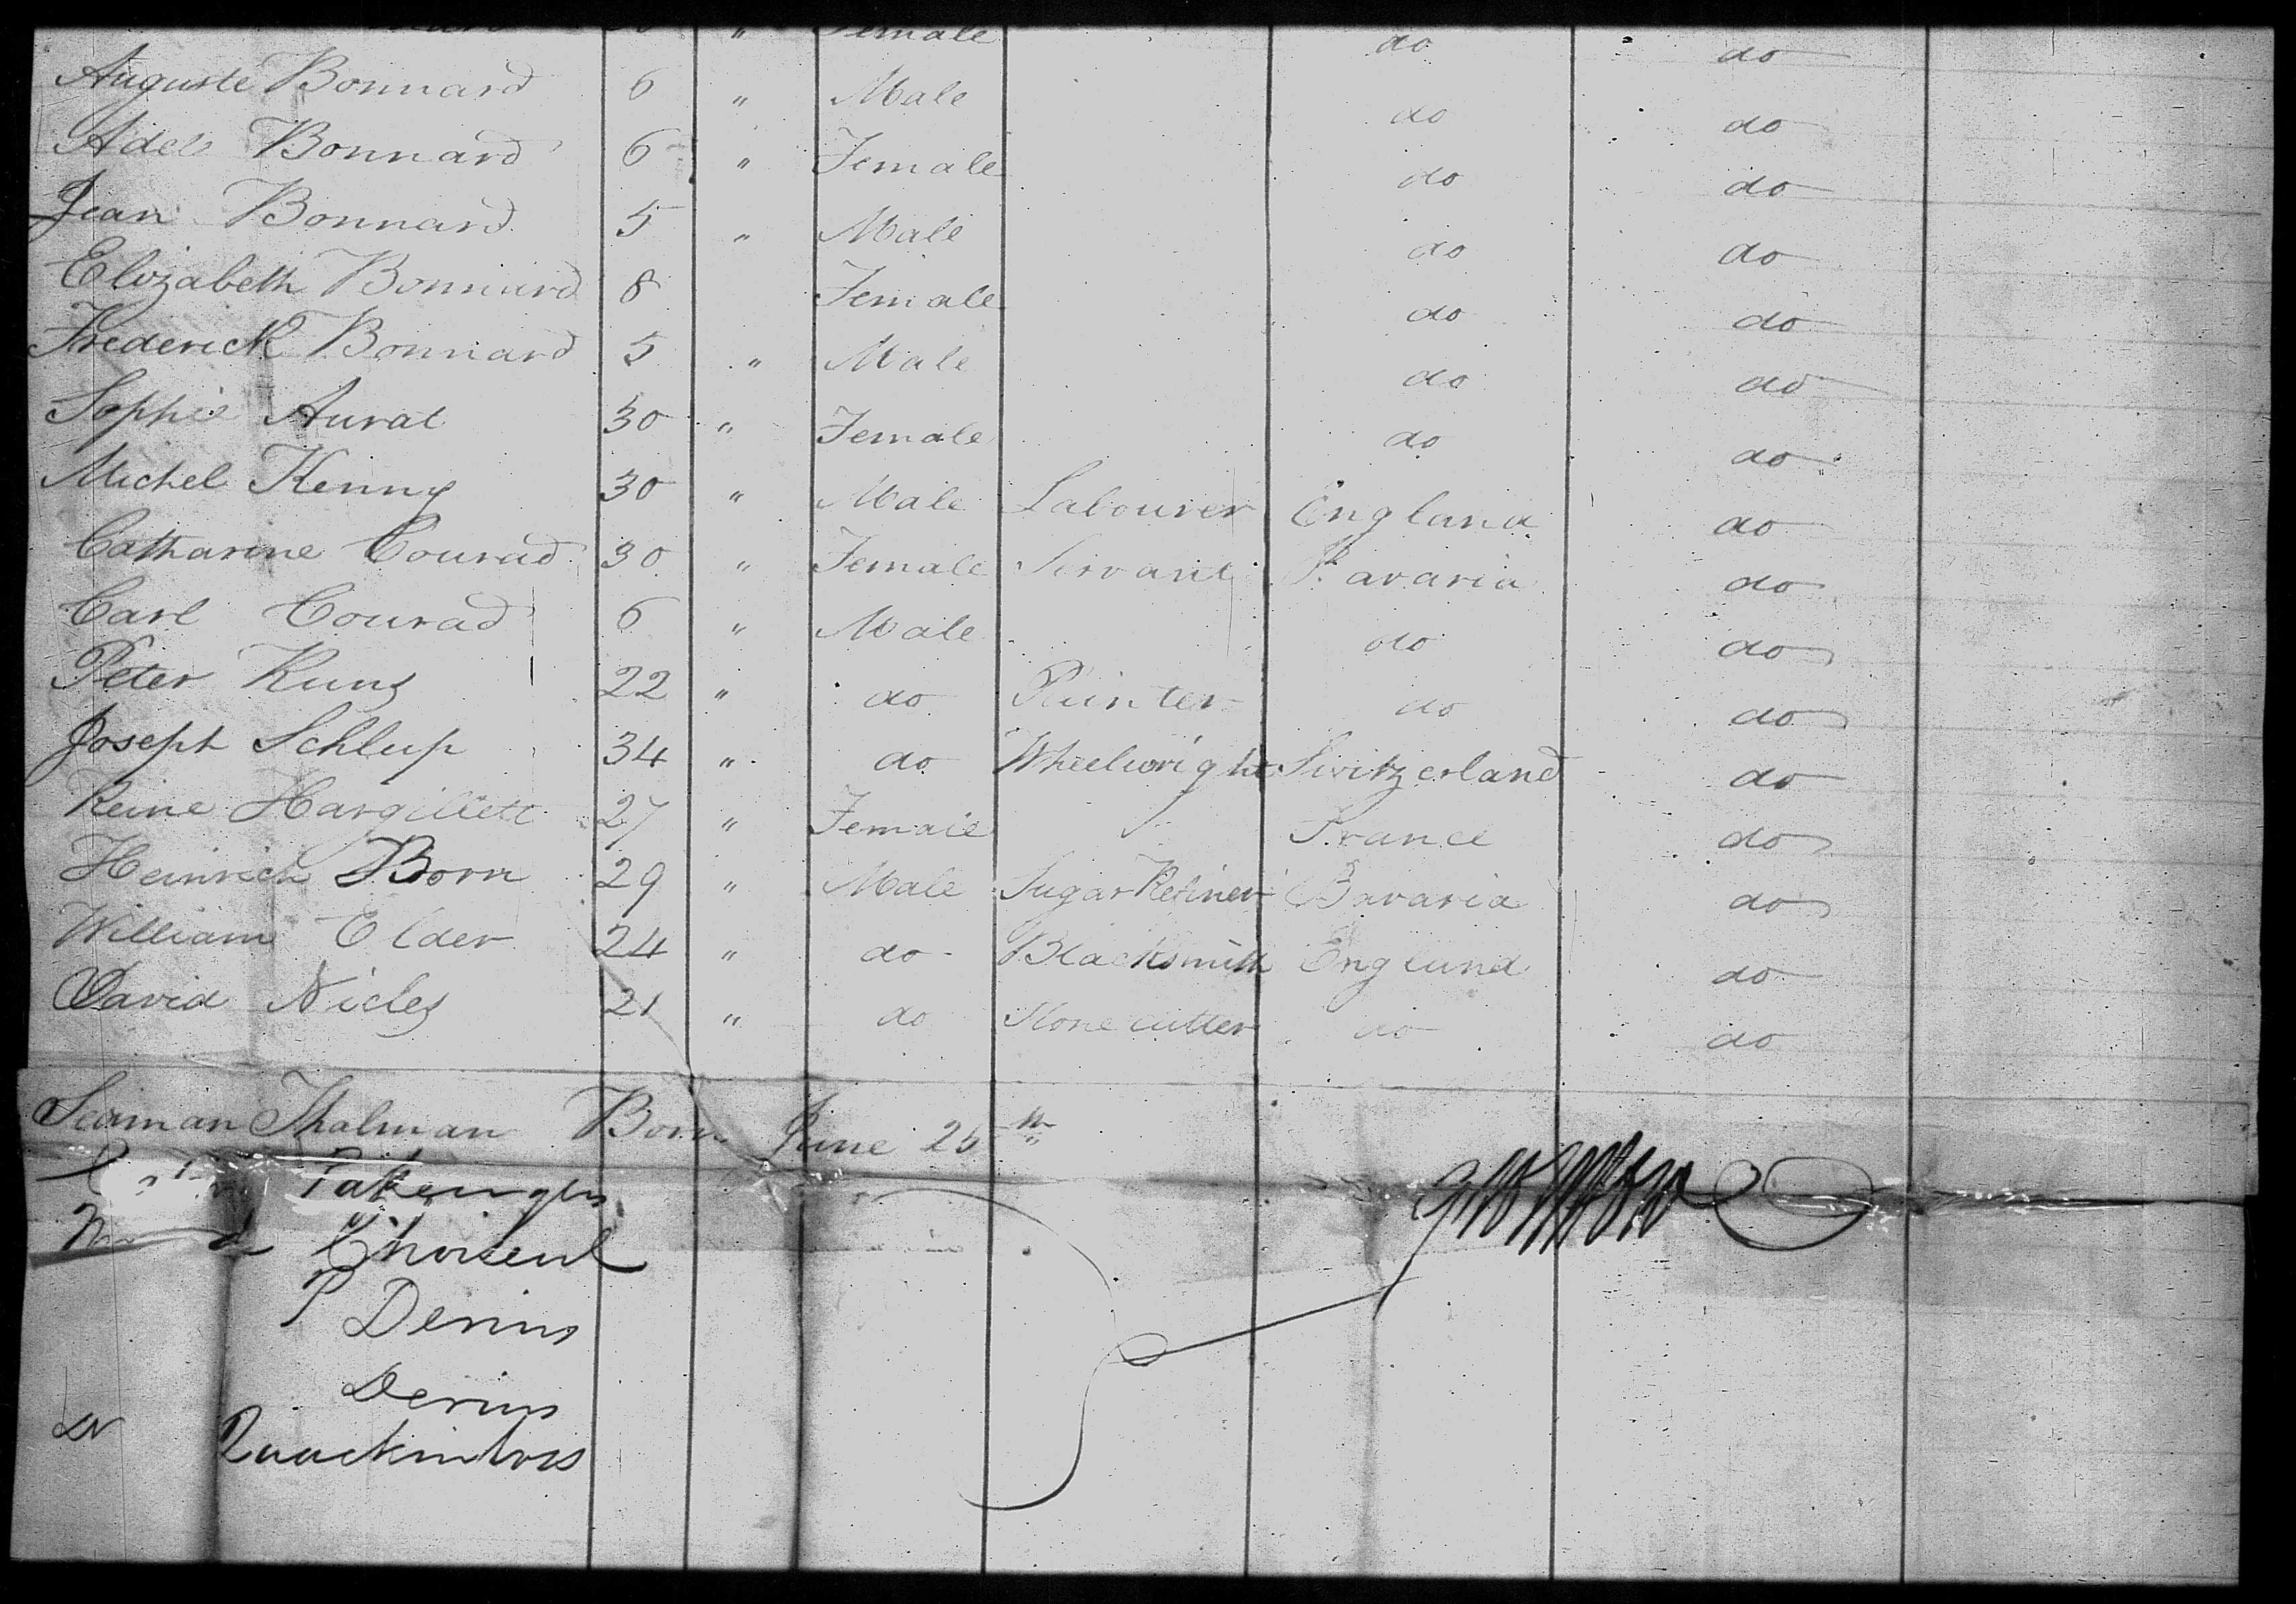 " Female do do
Auguste Bonnard 6 " Male do do
Adele Bonnard 6 " Female do do
Jean Bonnard 5 " Male do do
Elizabeth Bonnard 8 Female do do
Frederick Bonnard 5 " Male do do
Sophie Aurat 30 " Female do do
Michel Kenny 30 " Male Labourer England do
Catharine Conrad 30 " Female Servant Bavaria do
Carl Conrad 6 " Male do do
Peter Kunz 22 " do Painter do do
Joseph Schlup 34 " do Wheelwright Switzerland do
Reine Hargillett 27 " Female France do
Heinrich Born 29 " Male Sugar Refiner Bavaria do
William Elder 24 " do Blacksmith England do
David Nicles 21 " do Stone cutter do do
Seaman Thalman Born June 25th
Choiseul
P Denius
Denius